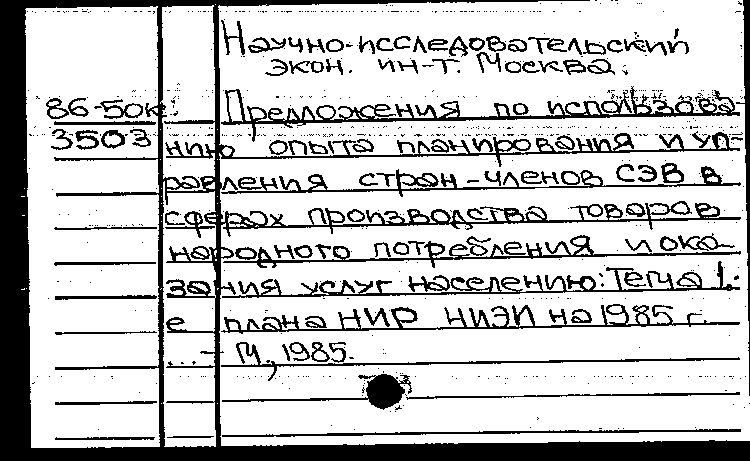 Научно-исследовательский
экон. ин-т. Москва.
86-50к Предложения по использова-
3503 нию опыта планирования и уп-
равления стран-членов СЭВ в
сферах производства товаров
народного потребления и ока-
зания услуг населению: Тема 1.-
е плана НИР НИЭИ на 1985 г.
...- М., 1985.